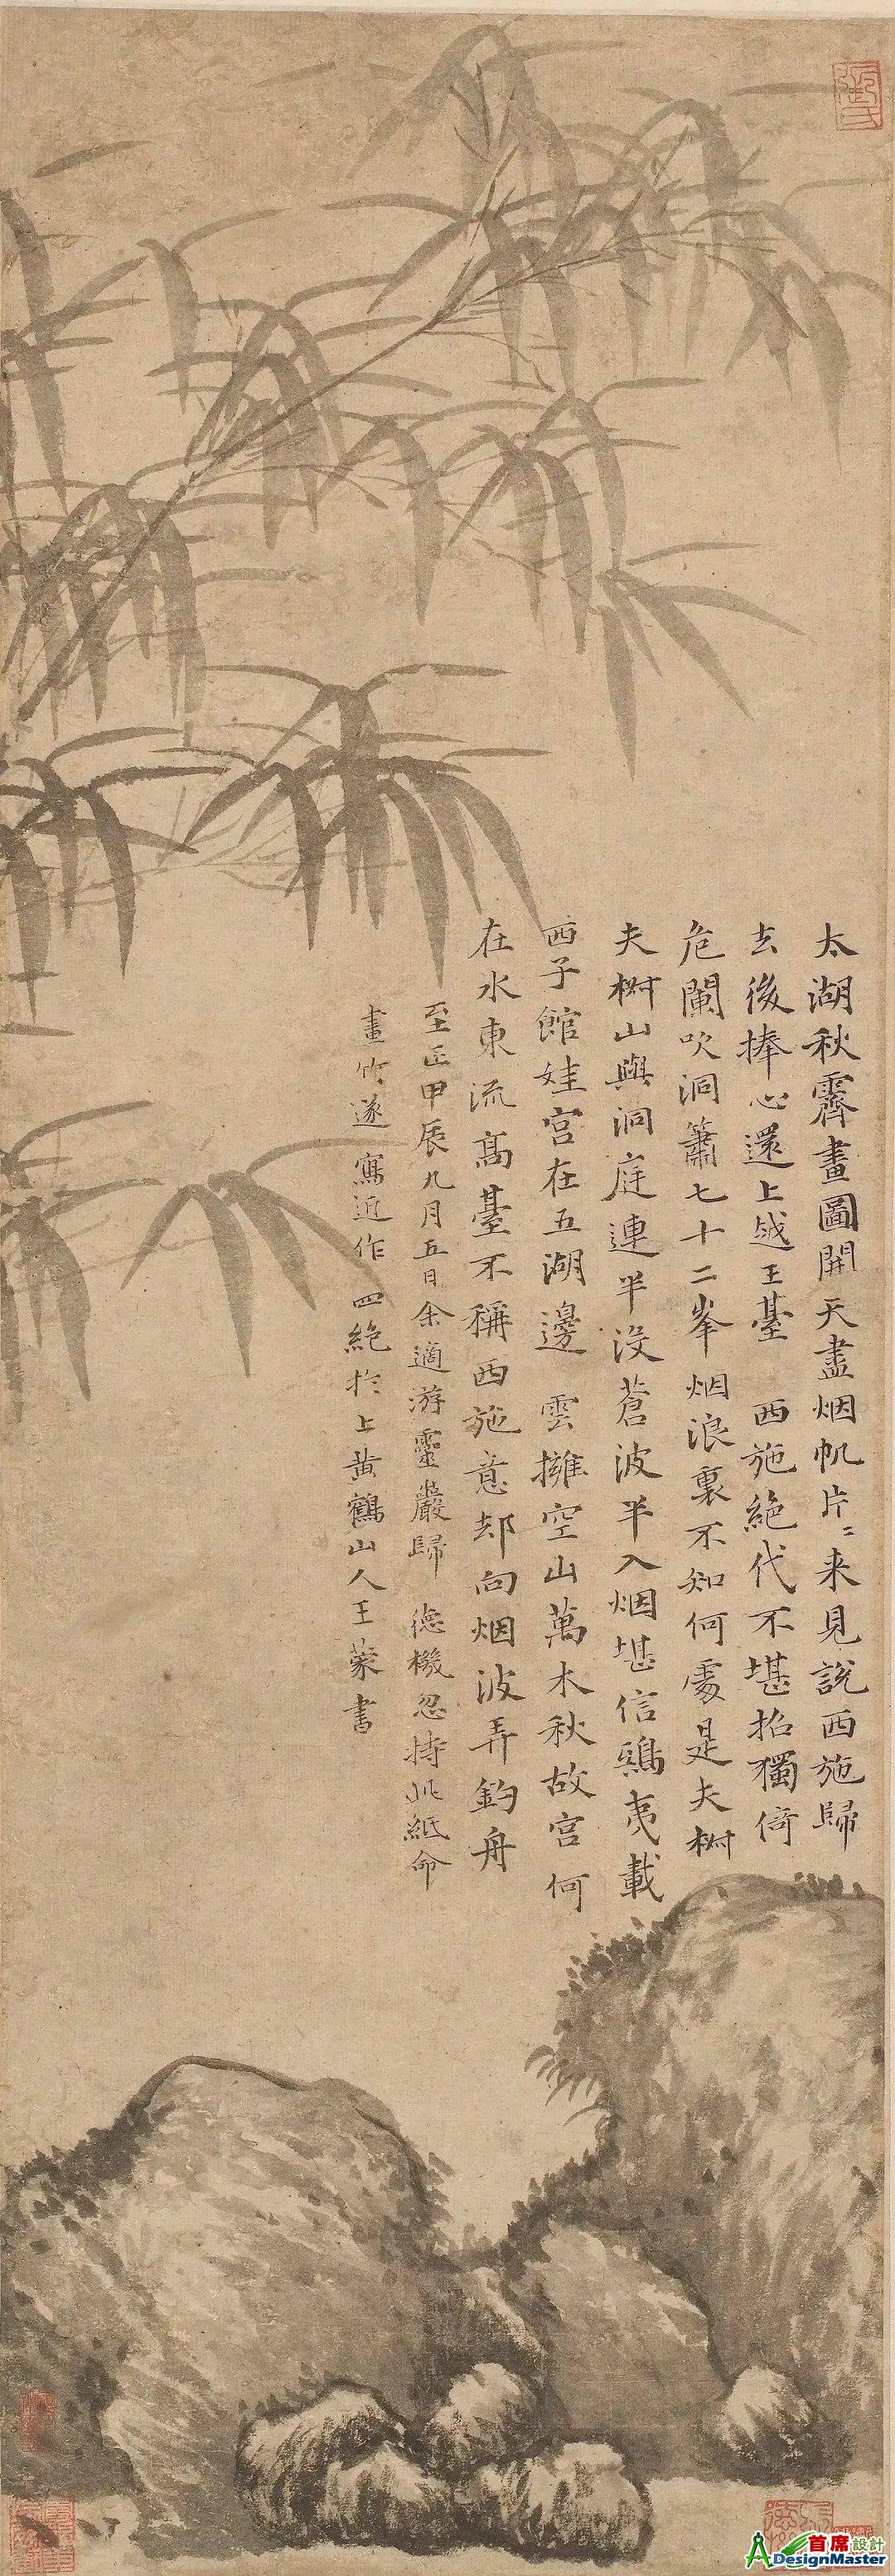 太湖秋霽畫圖開天盡烟帆片〻来見說西施歸
去後捧心還上越王臺　西施絶代不堪招獨倚
危闌吹洞簫七十二峯烟浪裏不知何處是夫椒
夫椒山與洞庭連半没蒼波半入烟堪信鴟夷載
西子館娃宮在五湖邊　雲擁空山萬木秋故宮何
在水東流高臺不稱西施意却向烟波弄釣舟
至正甲辰九月五日余適游靈巖歸　德機忽持此紙命
畫竹遂寫近作四絶於上黄鶴山人王蒙書
首席設計
ADesignMaster